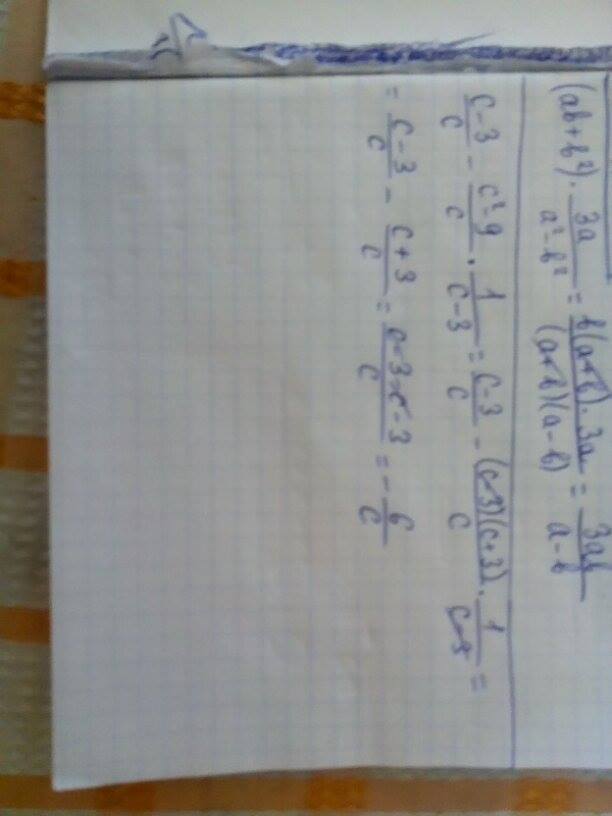 (ab+b²)·3a/(a²-b²) = b(a+b)·3a/((a+b)(a-b)) = 3ab/(a-b)
(c-3)/c - (c²-9)/c · 1/(c-3) = (c-3)/c - (c-3)(c+3)/c · 1/(c-3) =
= (c-3)/c - (c+3)/c = (c-3-c-3)/c = -6/c